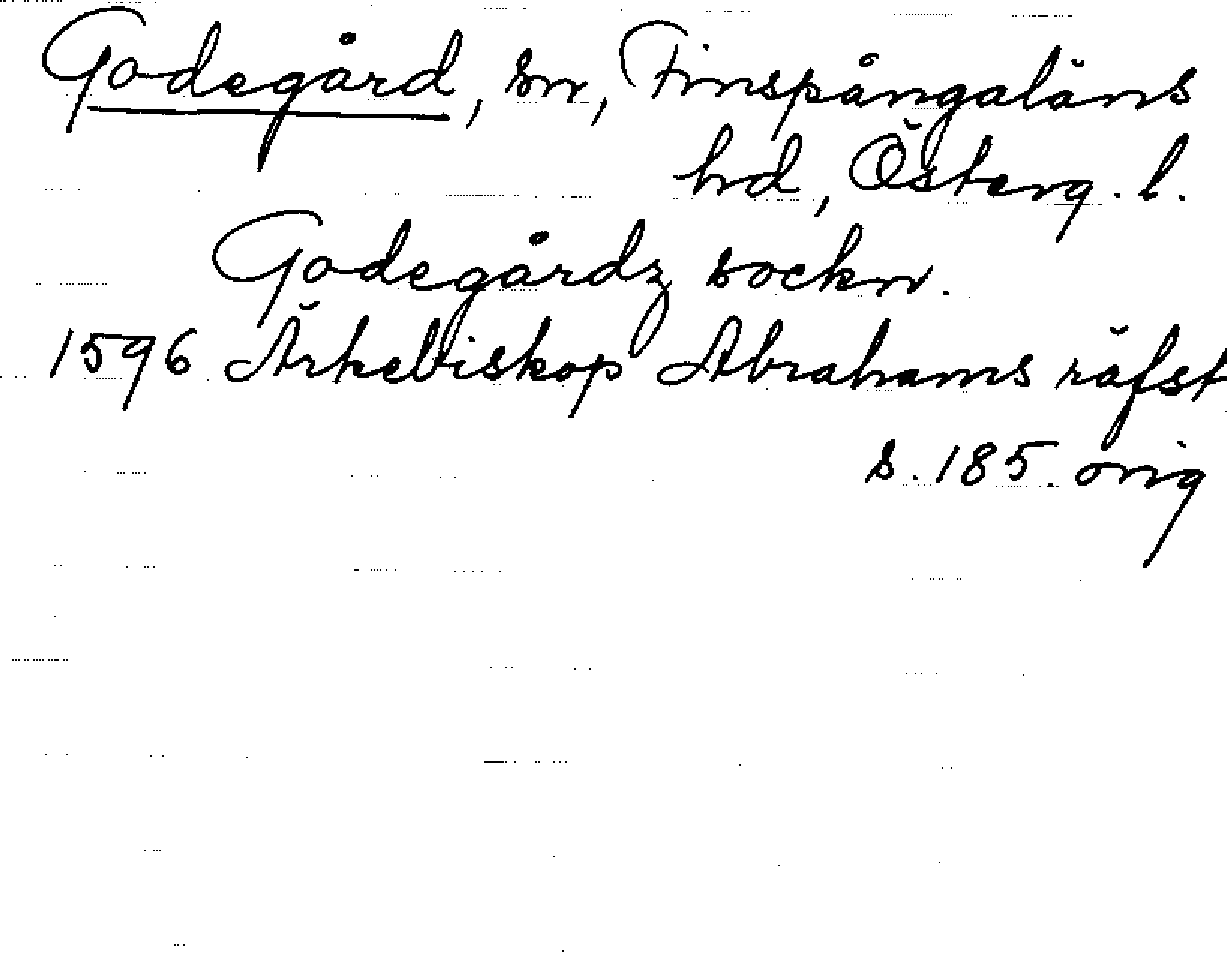 Godegård, sn, Finspångaläns
hd, Österg. l.
Godegårdz sockn.
1596 Ärkebiskop Abrahams räfst
s. 185. orig